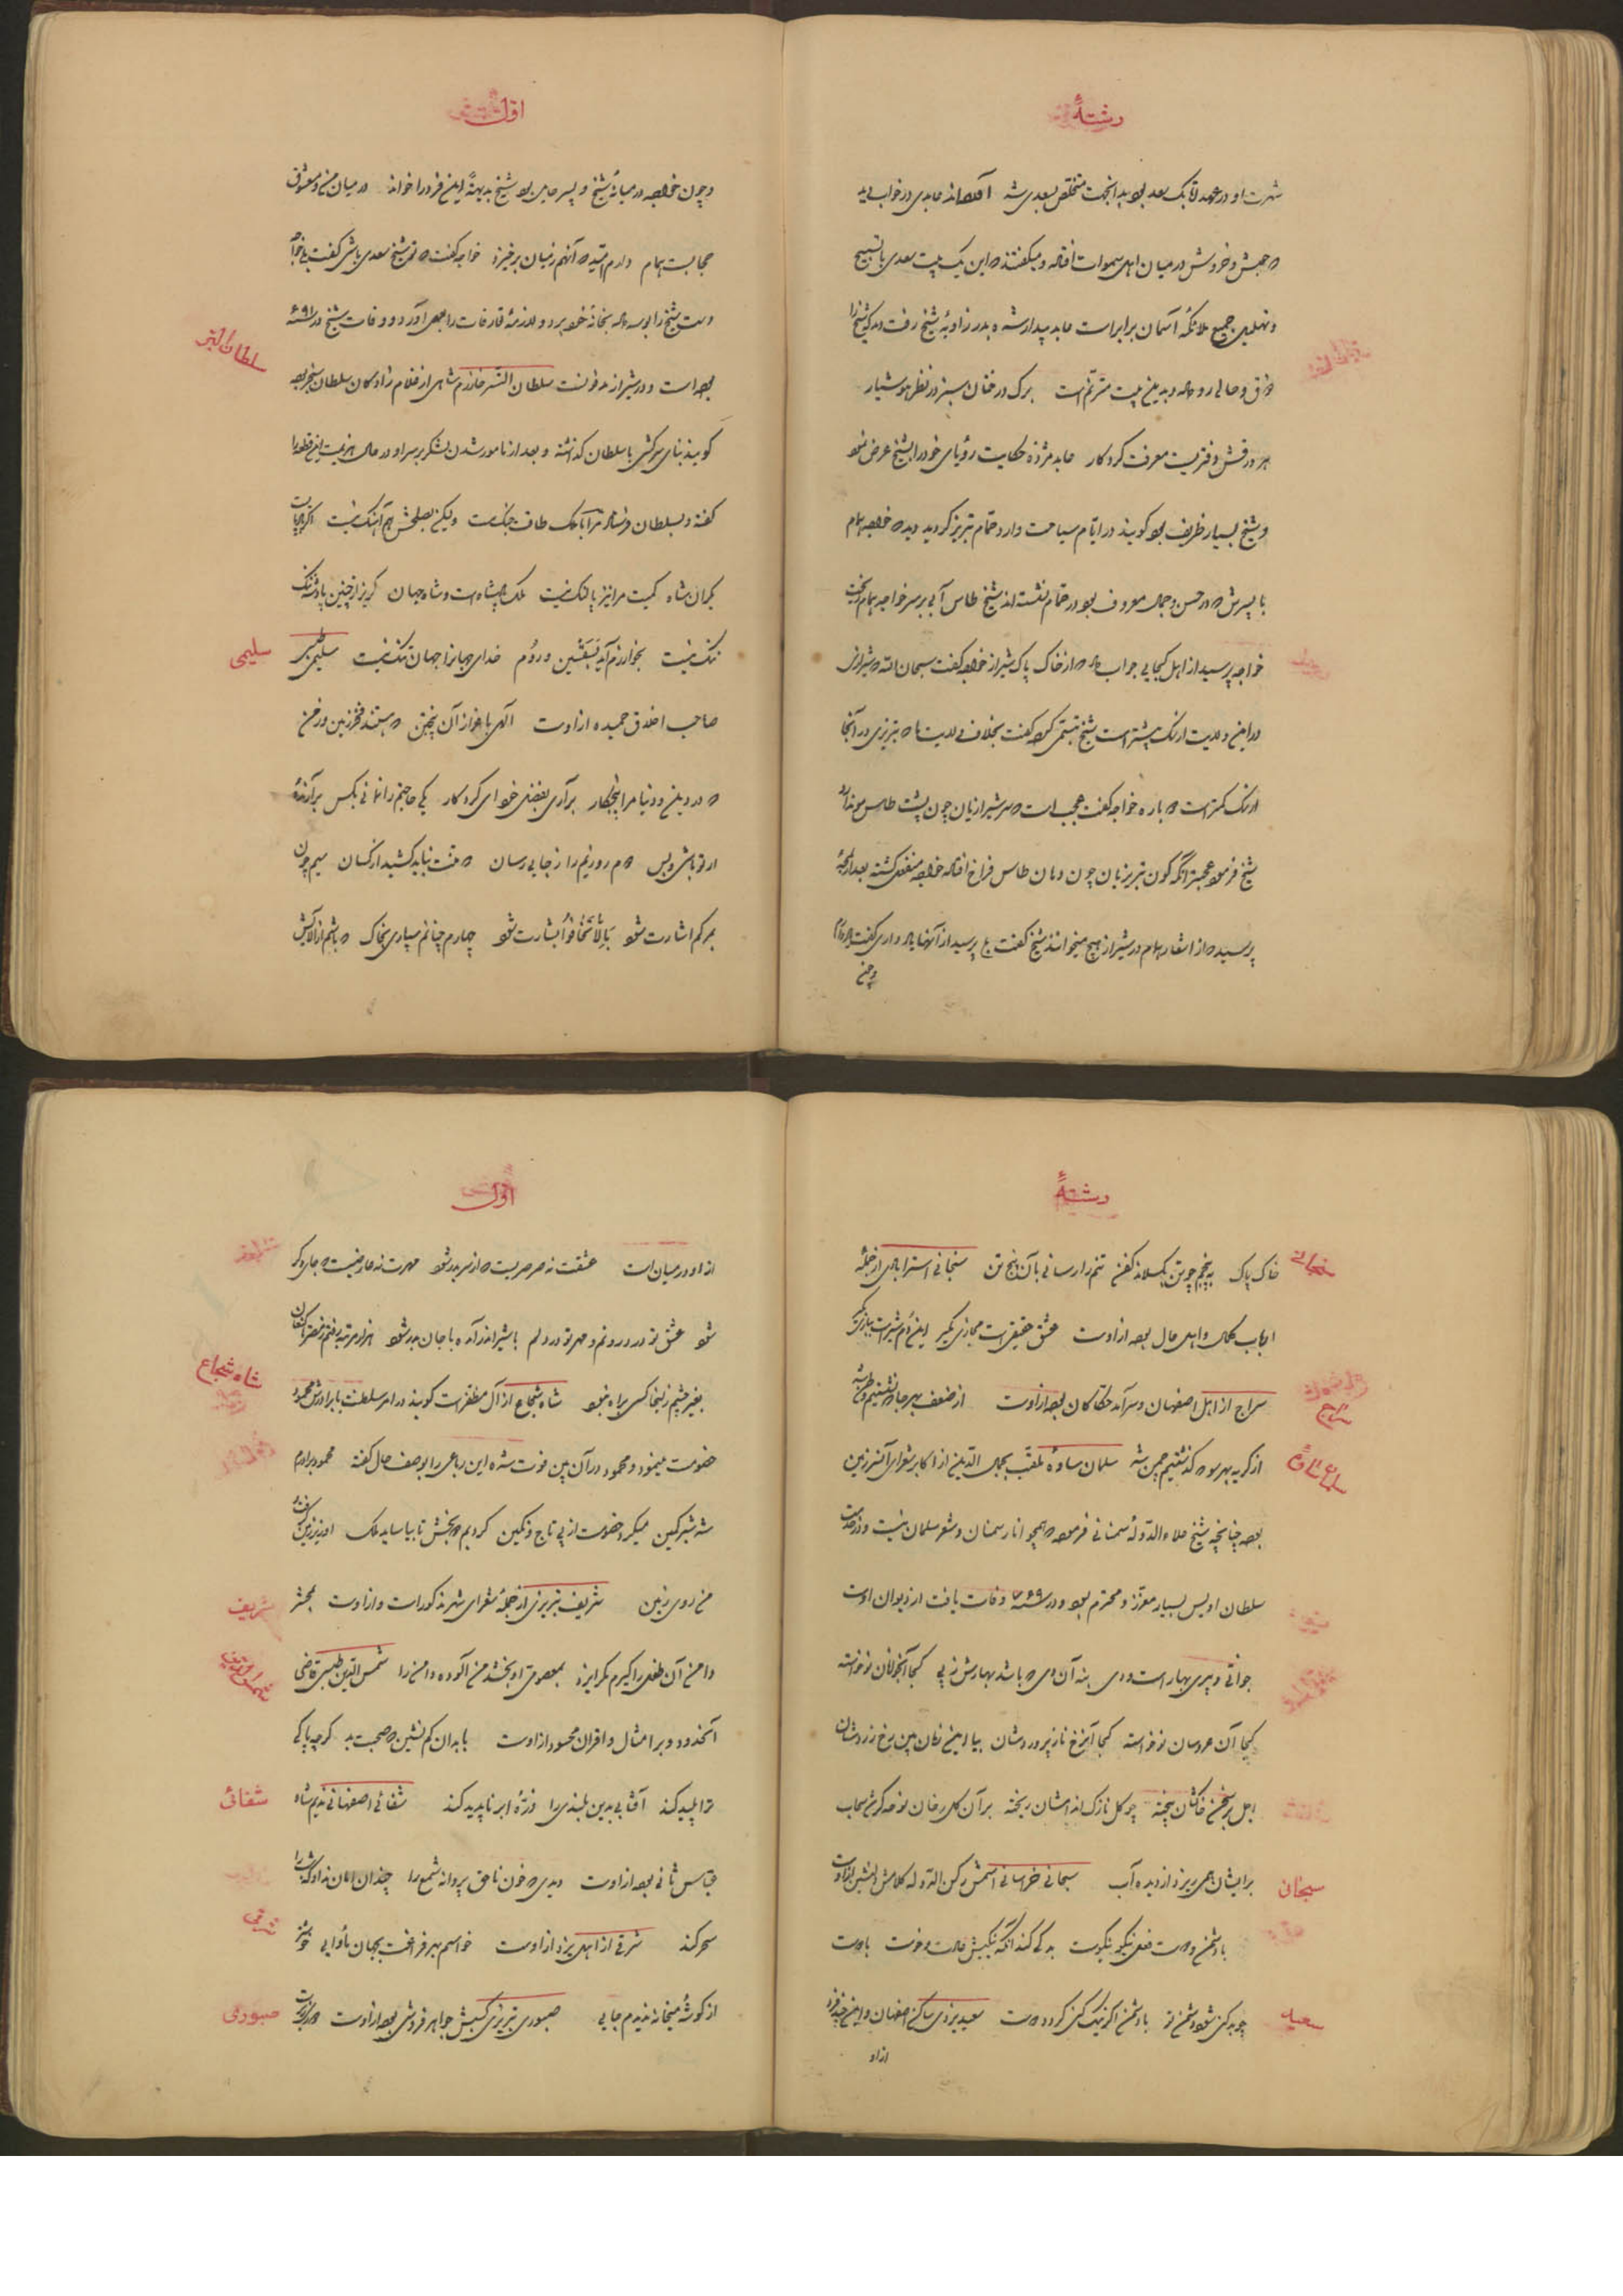 رشتهٔ
شهرت او در عهد اتابک سعد بود بدانجهت متخلص بسعدی شد آورده‌اند عابدی در خواب دید
که جوش و خروش در میان اهل سموات افتاده و میگفتند که این یک بیت سعدی با تسبیح
و تهلیل جمیع ملائکه آسمان برابر است عابد بیدار شده بدر زاویه شیخ رفت دید که شیخ را
ذوق و حالی رو داده و بدین بیت مترنم است برگ درختان سبز در نظر هوشیار
هر ورقش دفتریست معرفت کردگار عابد مژده حکایت رؤیای خود را بشیخ عرض نمود
و شیخ بسیار ظریف بود گویند در ایام سیاحت وارد حمام تبریز گردید دید که خواجه همام
با پسرش که در حسن و جمال معروف بود در حمام نشسته‌اند شیخ طاس آبی بر سر خواجه همام ریخت
خواجه پرسید از اهل کجایی جواب داد که از خاک پاک شیراز خواجه گفت سبحان الله که شیرازی
در این ولایت از سگ بیشتر است شیخ تبسمی کرده گفت بخلاف ولایت ما که تبریزی در آنجا
از سگ کمتر است دوباره خواجه گفت عجب است که سر شیرازیان چون پشت طاس مو ندارد
شیخ فرمود عجبتر آنکه کون تبریزیان چون دهان طاس فراخ افتاده خواجه منفعل گشته بعد از لمحهٔ
پرسید که از اشعار همام در شیراز هیچ میخوانند شیخ گفت بلی پرسید از آنها یاد داری گفت
اول
و چون خواجه در میانهٔ شیخ و پسر حایل بود شیخ بدیههٔ این فرد را خواند در میان من و معشوق
حجابست همام دارم امید که آنهم ز میان برخیزد خواجه گفت که تو شیخ سعدی باشی گفت بلی
دست شیخ را بوسه داده بخانهٔ خود برد و لازمهٔ تعارفات را بعمل آورد و وفات شیخ در سنه ۶۹۱
بوده است و در شیراز مدفونست سلطان اتسز خوارزم شاهی از غلام زادگان سلطان سنجر بوده
سلطان اتسز
گویند بنای سرکشی با سلطان گذاشته و بعد از نامور شدن لشکر بر سر او در حال هزیمت این قطعه را
گفته و بسلطان فرستاده مرا با ملک طاقت جنگ نیست ولیکن بصلحش هم آهنگ نیست
یکران شاه کمیت مرا نیز پا لنگ نیست ملک پادشاه است و شاه جهان گریز از چنین پادشه ننگ
ننگ نیست بخوارزم آید بسقسین و روم خدای جهانرا جهان تنگ نیست
سلیمی
صاحب اخلاق حمیده از اوست الهی باعزاز آن پنجتن که هستند فخر زمین و زمن
که در دین و دنیا مرا پنجکار برآری بفضل خود ای کردگار یکی حاجتم را نمانی بکس برآرندهٔ
از تو باشی و بس دوم روزیم را ز جایی رسان که منت نباید کشید از کسان سیم چون
بمرگم اشارت شود بَالاّتَخَافُوا بشارت شود چهارم چنانم سپاری بخاک که باشم ز آلایش
رشتهٔ
خاک پاک به پنجم چو تن بگسلاند کفن تنم را رسانی بآن پنج تن سنجانی استرابادی از جمله
ارباب کمال و اهل حال بوده از اوست عشق حقیقی است مجازی مگیر این دم شیر است ببازی مگیر
سراج از اهل اصفهان و سرآمد حکاکان بوده از اوست از ضعف بهر جا که نشستیم وطن شد
سراج
از گریه بهر سو که گذشتیم چمن شد سلمان ساوهٔ ملقب بجمال الدین از اکابر شعرای آن سرزمین
بوده چنانچه شیخ علاء الدوله سمنانی فرموده که همچو انار سمنان و شعر سلمان نیست و در خدمت
سلطان اویس بسیار معزز و محترم بود و در سنه ۷۶۹ وفات یافت از دیوان اوست
جوانی و پیری بهار است و دی بنه آن دی که باشد بهارش ز پی کجا آنجوانان نوخاسته
کجا آن عروسان نوخواسته کجا آنرخ ناز پروردشان بیا این زمان بین رخ زردشان
اجل بر سخن خاکشان بیخته چو گل نازک اندامشان ریخته بر آن گلرخان نوحه‌گر شد سحاب
بر ایشان همی ریزد از دیده آب سبحانی خراسانی اسمش رکن الدوله کلامش دلنشین از اوست
سبحانی
با دشمن و دوست فعل نیکو نیکوست بد کی کند آنکه نیکیش عادت و خوست با دوست
چو بد کنی شود دشمن تو با دشمن اگر نیک کنی گردد دوست سعید یزدی ساکن اصفهان و این چند فرد
سعید
از او
اول
از او در میان است عشقت نه صرصریست که از سر بدر شود مهرت نه عارضیست که جای دگر
شود عشق تو در درونم و مهر تو در دلم با شیر اندر آمد و با جان بدر شود
بغیر چشم زلیخا کسی براه نبود شاه شجاع از آل مظفر است گویند در امر سلطنت با برادرش محمود
شاه شجاع
خصومت مینمود و محمود در آن بین فوت شده این رباعی را بوصف حال گفته محمود برادرم
شه شیر کمین میکرد خصومت از پی تاج و نگین کردیم دو بخش تا بیاساید ملک او زیر زمین گرفت
من روی زمین شریف تبریزی از جملهٔ شعرای شهر مذکور است و از اوست بمحشر
شریف
دامن آن طفل را گیرم مگر ایزد بمعصومی او بخشد من آلوده دامن را شمس الدین طبسی قاضی
آنحدود و بر امثال و اقران محسود از اوست با بدان کم نشین که صحبت بد گرچه پاکی
ترا پلید کند آفتابی بدین بلندی را ذرهٔ ابر ناپدید کند شفائی اصفهانی ندیم شاه
شفائی
عباس ثانی بوده از اوست دیدی که خون ناحق پروانه شمع را چندان امان نداد که شب را
سحر کند شرقی از اهل یزد از اوست خواستم بهر فراغت بجهان مأوایی
شرقی
از گوشهٔ میخانه ندیدم جایی صبوری تبریزی کسبش جواهر فروشی بوده از اوست
صبوری